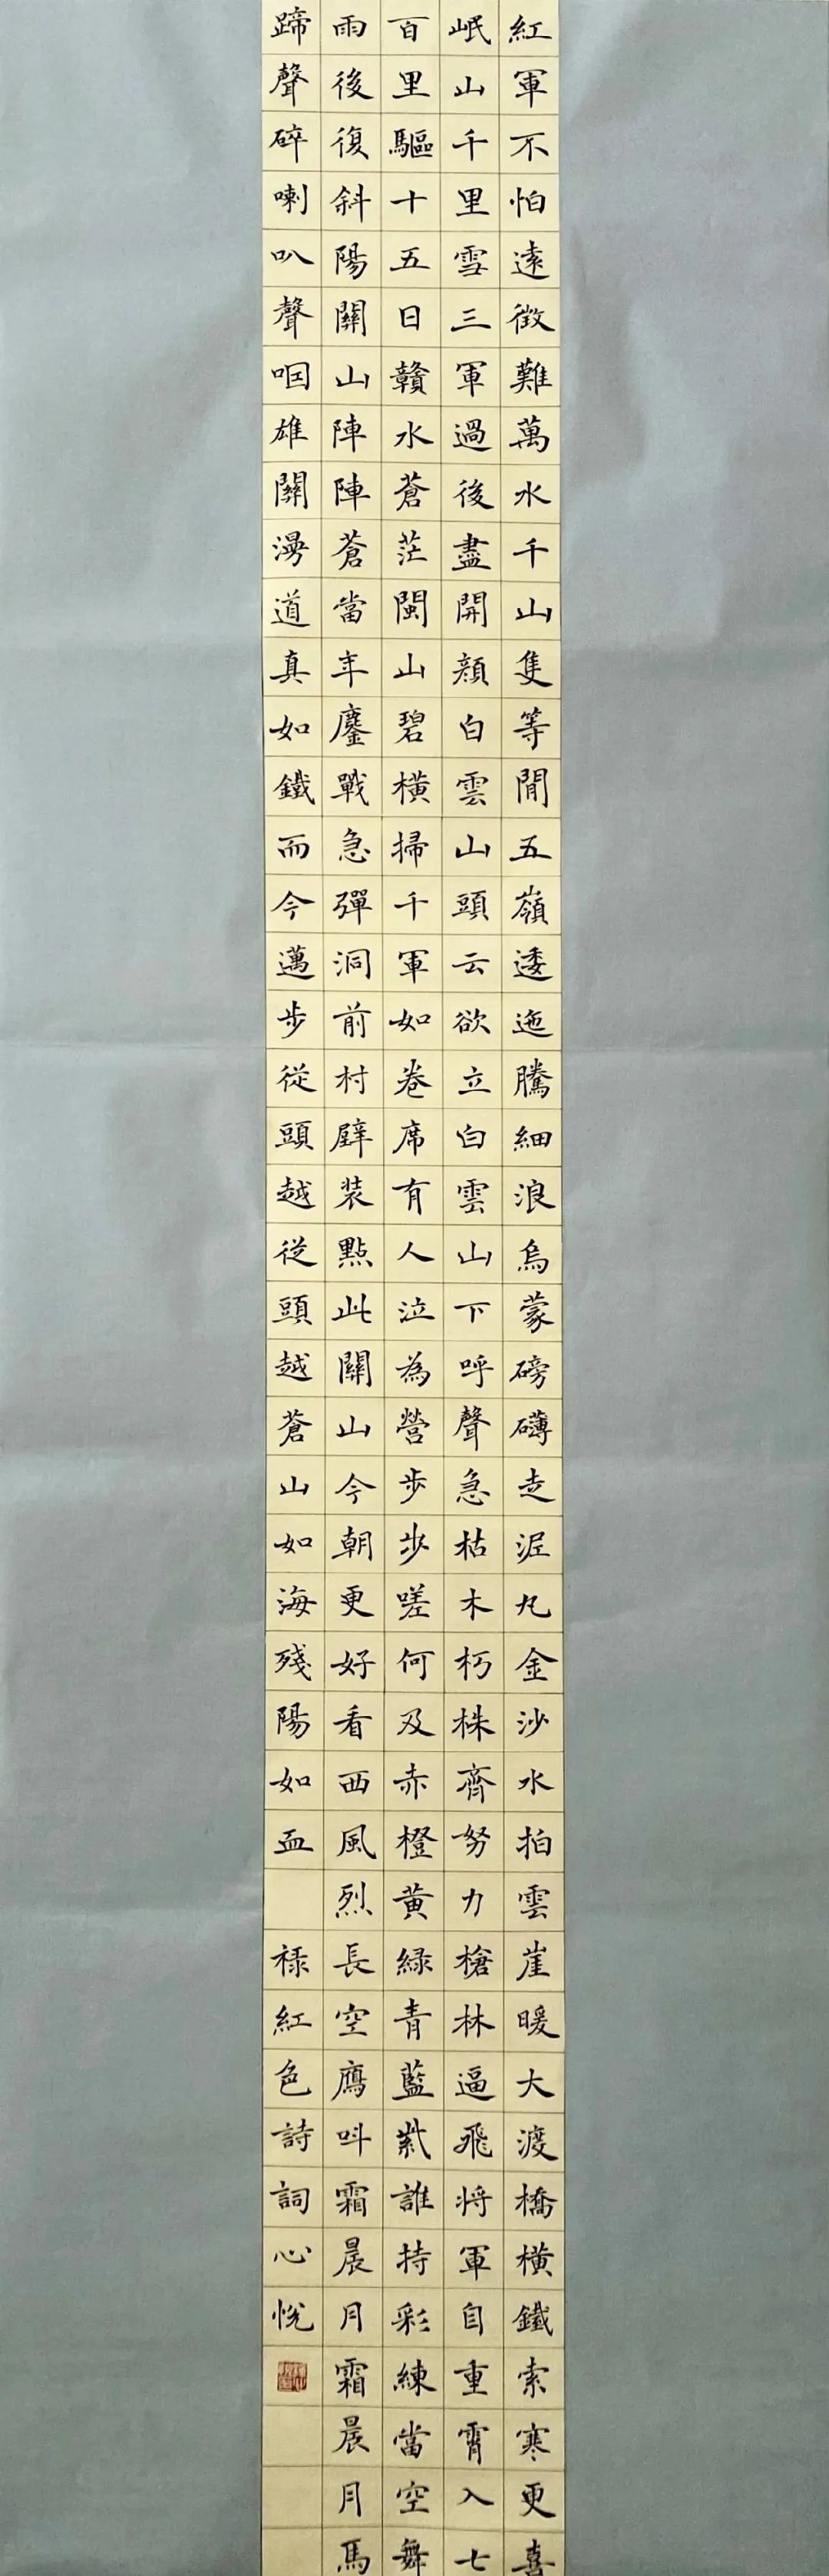 紅軍不怕遠徵難萬水千山隻等閒五嶺逶迤騰細浪烏蒙磅礴走泥丸金沙水拍雲崖暖大渡橋橫鐵索寒更喜
岷山千里雪三軍過後盡開顏白雲山頭云欲立白雲山下呼聲急枯木朽株齊努力槍林逼飛将軍自重霄入七
百里驅十五日贛水蒼茫閩山碧橫掃千軍如卷席有人泣為營步步嗟何及赤橙黃綠青藍紫誰持彩練當空舞
雨後復斜陽關山陣陣蒼當年鏖戰急彈洞前村壁装點此關山今朝更好看西風烈長空鴈叫霜晨月霜晨月馬
蹄聲碎喇叭聲咽雄關漫道真如鐵而今邁步從頭越從頭越蒼山如海殘陽如血 禄紅色詩詞心悅